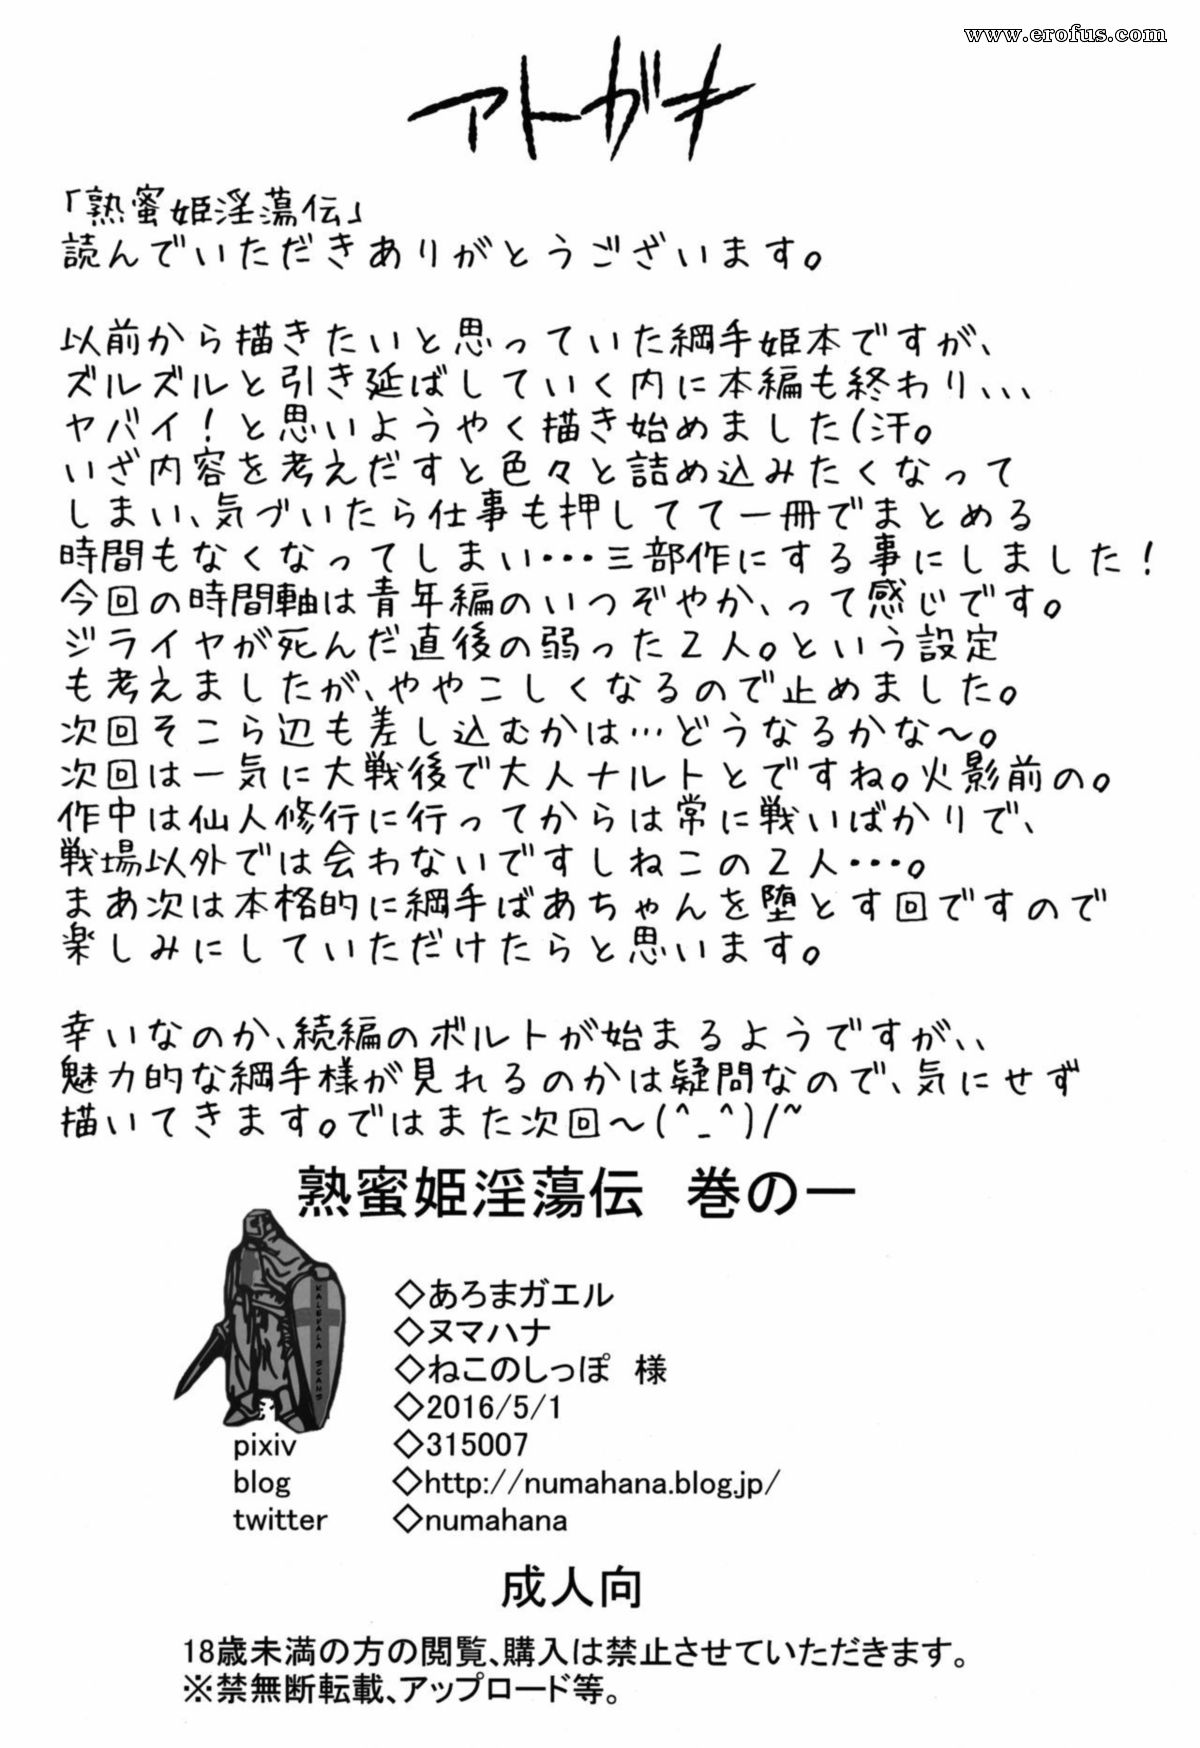 www.erofus.com
アトガキ
「熟蜜姫淫蕩伝」
読んでいただきありがとうございます。
以前から描きたいと思っていた綱手姫本ですが、
ズルズルと引き延ばしていく内に本編も終わり、、、
ヤバイ！と思いようやく描き始めました(汗。
いざ内容を考えだすと色々と詰め込みたくなって
しまい、気づいたら仕事も押してて一冊でまとめる
時間もなくなってしまい･･･三部作にする事にしました！
今回の時間軸は青年編のいつぞやか、って感じです。
ジライヤが死んだ直後の弱った２人。という設定
も考えましたが、ややこしくなるので止めました。
次回そこら辺も差し込むかは…どうなるかな～。
次回は一気に大戦後で大人ナルトとですね。火影前の。
作中は仙人修行に行ってからは常に戦いばかりで、
戦場以外では会わないですしねこの２人･･･。
まあ次は本格的に綱手ばあちゃんを堕とす回ですので
楽しみにしていただけたらと思います。
幸いなのか、続編のボルトが始まるようですが、、
魅力的な綱手様が見れるのかは疑問なので、気にせず
描いてきます。ではまた次回～(^_^)/~
熟蜜姫淫蕩伝　巻の一
◇あろまガエル
◇ヌマハナ
◇ねこのしっぽ　様
◇2016/5/1
pixiv ◇315007
blog ◇http://numahana.blog.jp/
twitter ◇numahana
KALEVALA SCANS
成人向
18歳未満の方の閲覧、購入は禁止させていただきます。
※禁無断転載、アップロード等。